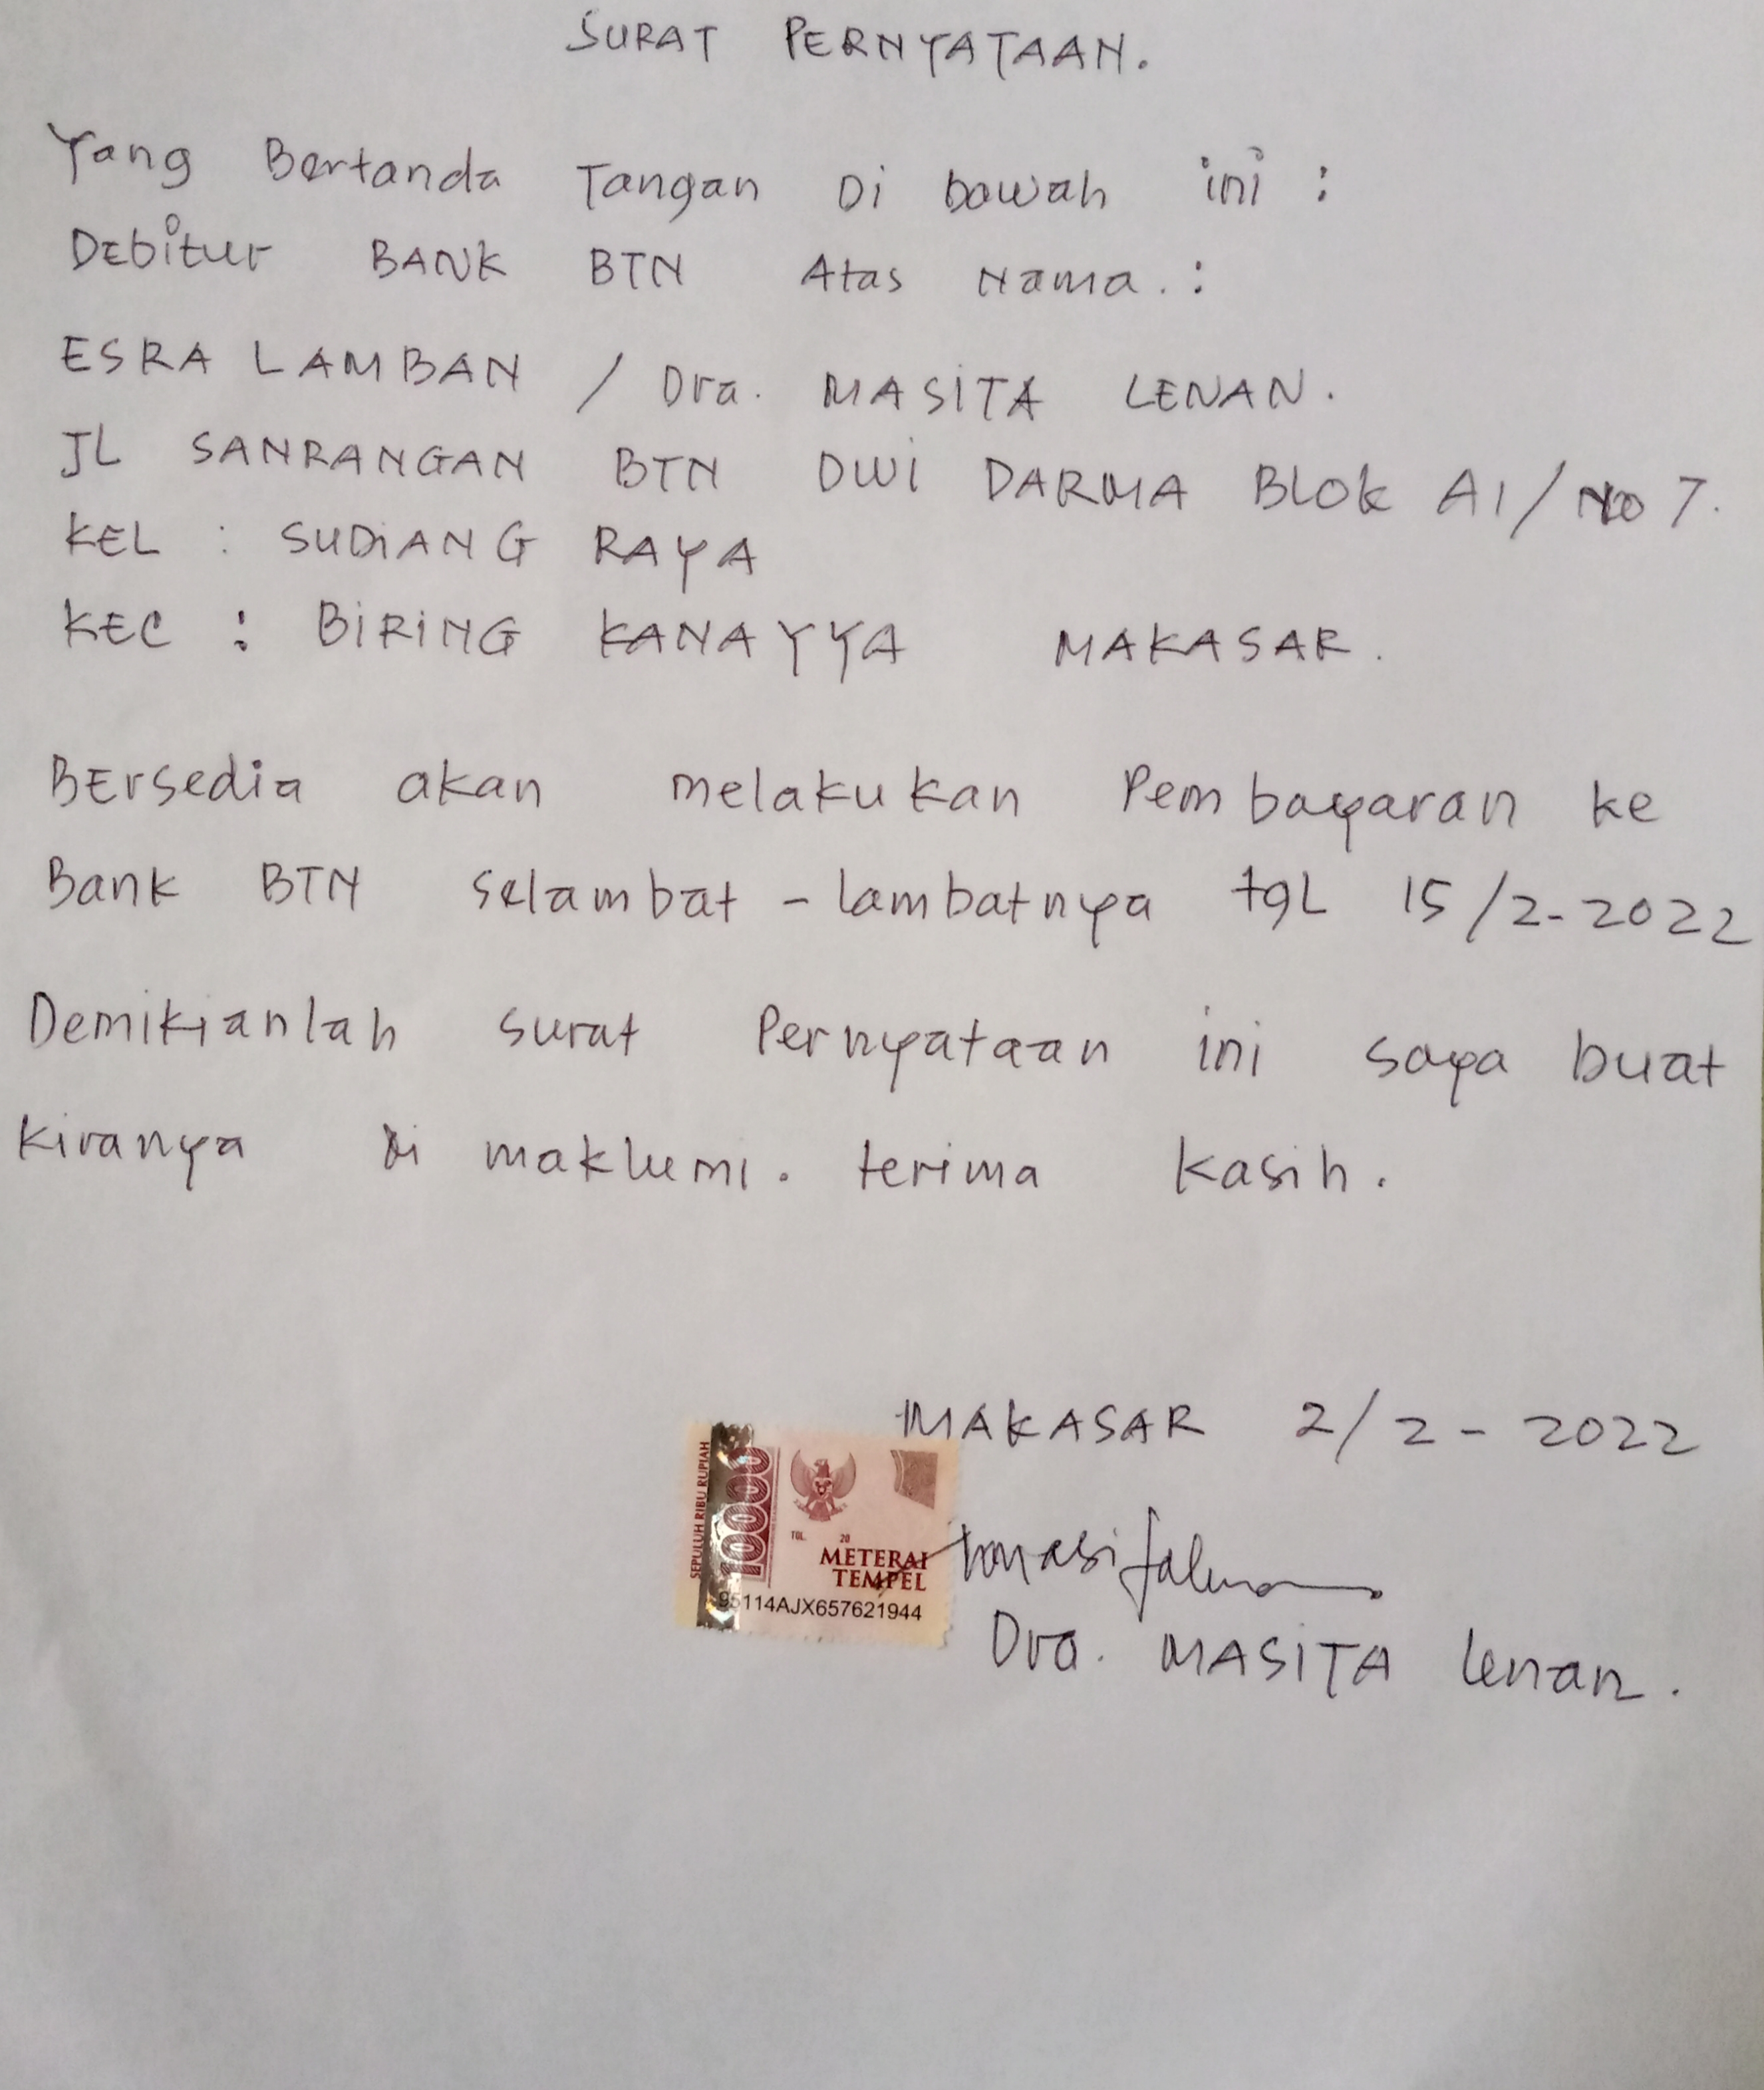 SURAT PERNYATAAN.
Yang Bertanda Tangan Di bawah ini :
Debitur BANK BTN Atas Nama. :
ESRA LAMBAN / Dra. MASITA LENAN.
JL SANRANGAN BTN DWI DARMA BLOK A1/No 7.
KEL : SUDIANG RAYA
KEC : BIRING KANAYYA MAKASAR.
Bersedia akan melakukan Pembayaran ke
Bank BTN selambat - lambatnya tgl 15/2-2022
Demikianlah surat Pernyataan ini saya buat
kiranya di maklumi. terima kasih.
MAKASAR 2/2-2022
SEPULUH RIBU RUPIAH
10000
TGL. 20
METERAI
TEMPEL
95114AJX657621944
Dra. MASITA Lenan.